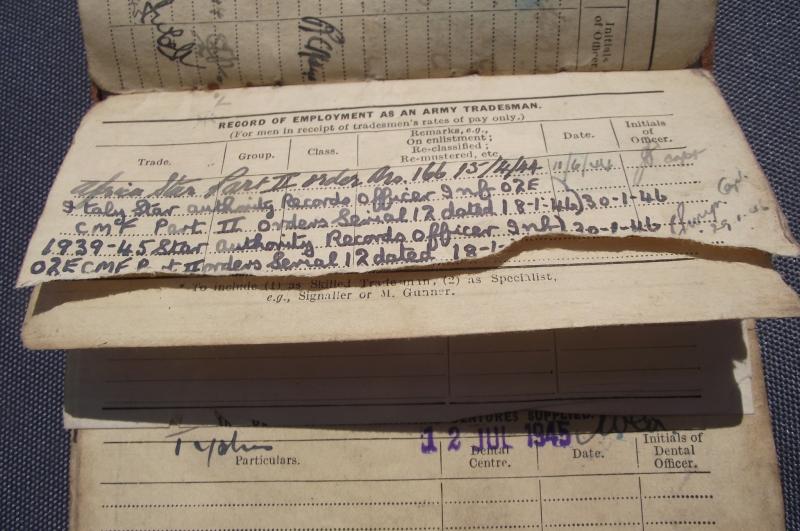 Initials
of Officer.
RECORD OF EMPLOYMENT AS AN ARMY TRADESMAN.
(For men in receipt of tradesmen's rates of pay only.)
Trade. Group. Class. Remarks, e.g., On enlistment; Re-classified; Re-mustered, etc. Date. Initials of Officer.
Africa Star Part II order No. 166 15/4/44 11/6/44 Capt
Italy Star authority Records Officer Inf O2E
CMF Part II orders Serial 12 dated 18-1-46) 30-1-46 Capt.
1939-45 Star authority Records Officer Inf) 30-1-46
O2E CMF Part II orders Serial 12 dated 18-1-
* To include (1) as Skilled Tradesman, (2) as Specialist,
e.g., Signaller or M. Gunner.
DENTURES SUPPLIED.
12 JUL 1945
Particulars. Dental Centre. Date. Initials of Dental Officer.